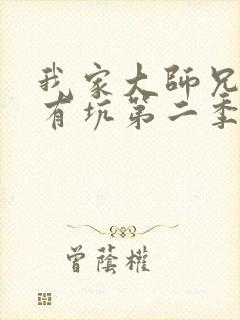 我家大師兄
有坑第二季
曾蔭權